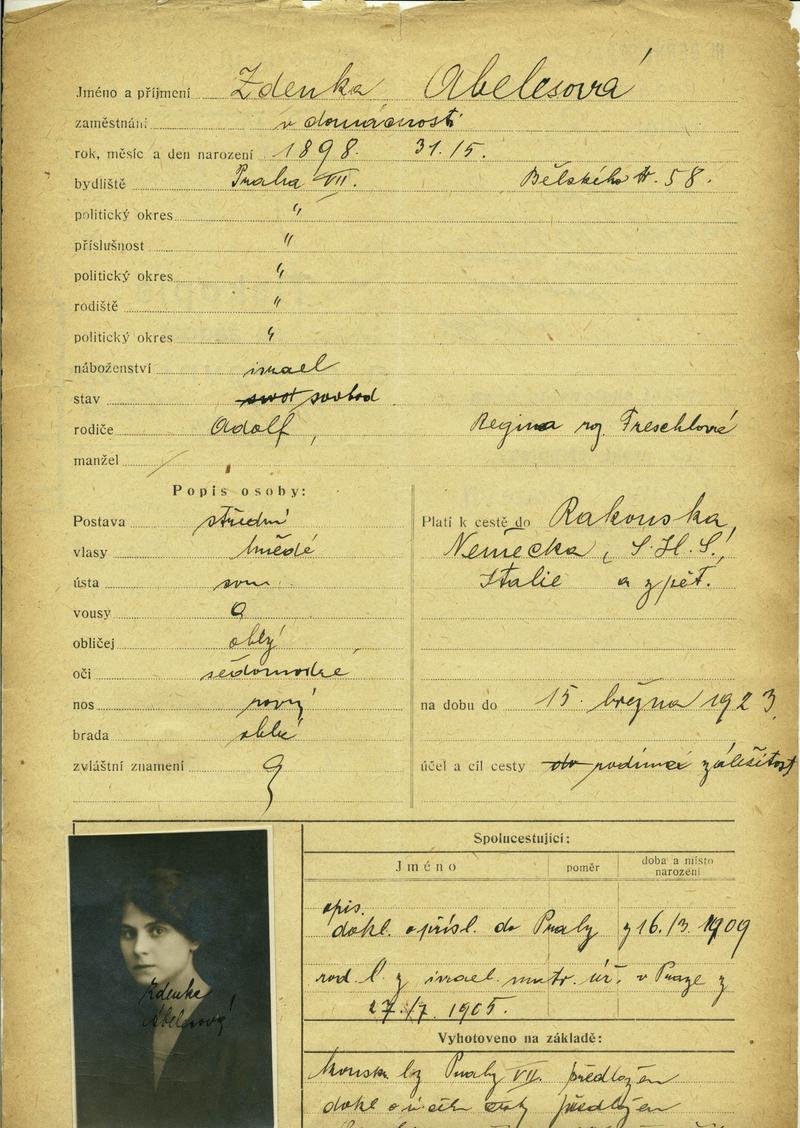 Jméno a příjmení Zdenka Abelesová
zaměstnání v domácnosti
rok, měsíc a den narození 1898. 31./5.
bydliště Praha VII. Bělského tř. 58.
politický okres "
příslušnost "
politický okres "
rodiště "
politický okres "
náboženství israel
stav svobod
rodiče Adolf, Regina roz. Freschlová
manžel
Popis osoby:
Postava střední
vlasy hnědé
ústa soum.
vousy
obličej oblý
oči šedomodré
nos rovný
brada oblá
zvláštní znamení
Platí k cestě do Rakouska,
Německa, S.H.S.,
Italie a zpět.
na dobu do 15. března 1923
účel a cíl cesty rodinná záležitost
Spolucestující:
Jméno poměr doba a místo narození
opis.
dokl. o přísl. do Prahy z 16./3. 1909
rod. l. z israel. matr. úř. v Praze z
27./7. 1905.
Vyhotoveno na základě:
Prahy VII. předložen
dokl o cesty předložen
Zdenka
Abelesová